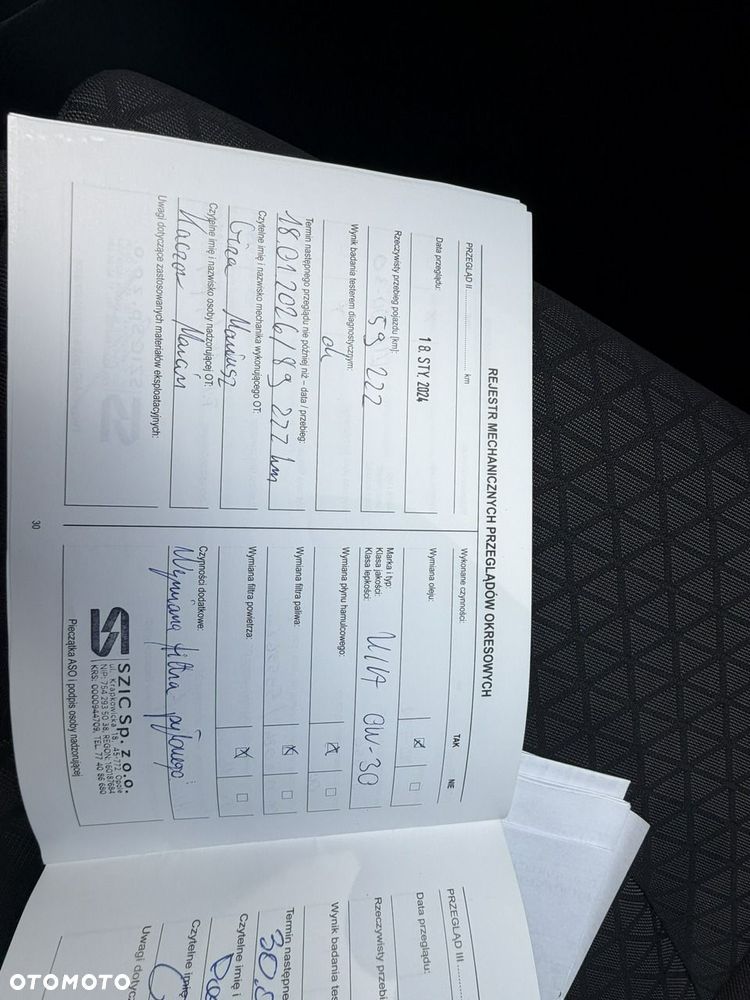 REJESTR MECHANICZNYCH PRZEGLĄDÓW OKRESOWYCH
PRZEGLĄD II .................... km
Data przeglądu:
18. STY. 2024
Rzeczywisty przebieg pojazdu [km]:
59 222
Wynik badania testerem diagnostycznym:
ok
Termin następnego przeglądu nie później niż – data / przebieg:
18.01.2026/89 222 km
Czytelne imię i nazwisko mechanika wykonującego OT:
Mariusz
Czytelne imię i nazwisko osoby nadzorującej OT:
Marcin
Uwagi dotyczące zastosowanych materiałów eksploatacyjnych:
Wykonane czynności:
TAK NIE
Wymiana oleju:
Marka i typ:
Klasa jakości:
Klasa lepkości:
0W-30
Wymiana płynu hamulcowego:
Wymiana filtra paliwa:
Wymiana filtra powietrza:
Czynności dodatkowe:
Wymiana filtra pyłowego
SZiC Sp. z o.o.
ul. Krapkowicka 18, 45-772 Opole
NIP: 754 293 50 38, REGON: 160187684
KRS: 0000944709, TEL. 77 40 86 680
Pieczątka ASO i podpis osoby nadzorującej
30
PRZEGLĄD III
Data przeglądu:
Rzeczywisty przebi
Wynik badania tes
Termin następne
30.
Czytelne imię i
Czytelne imię
Uwagi dotyc
OTOMOTO